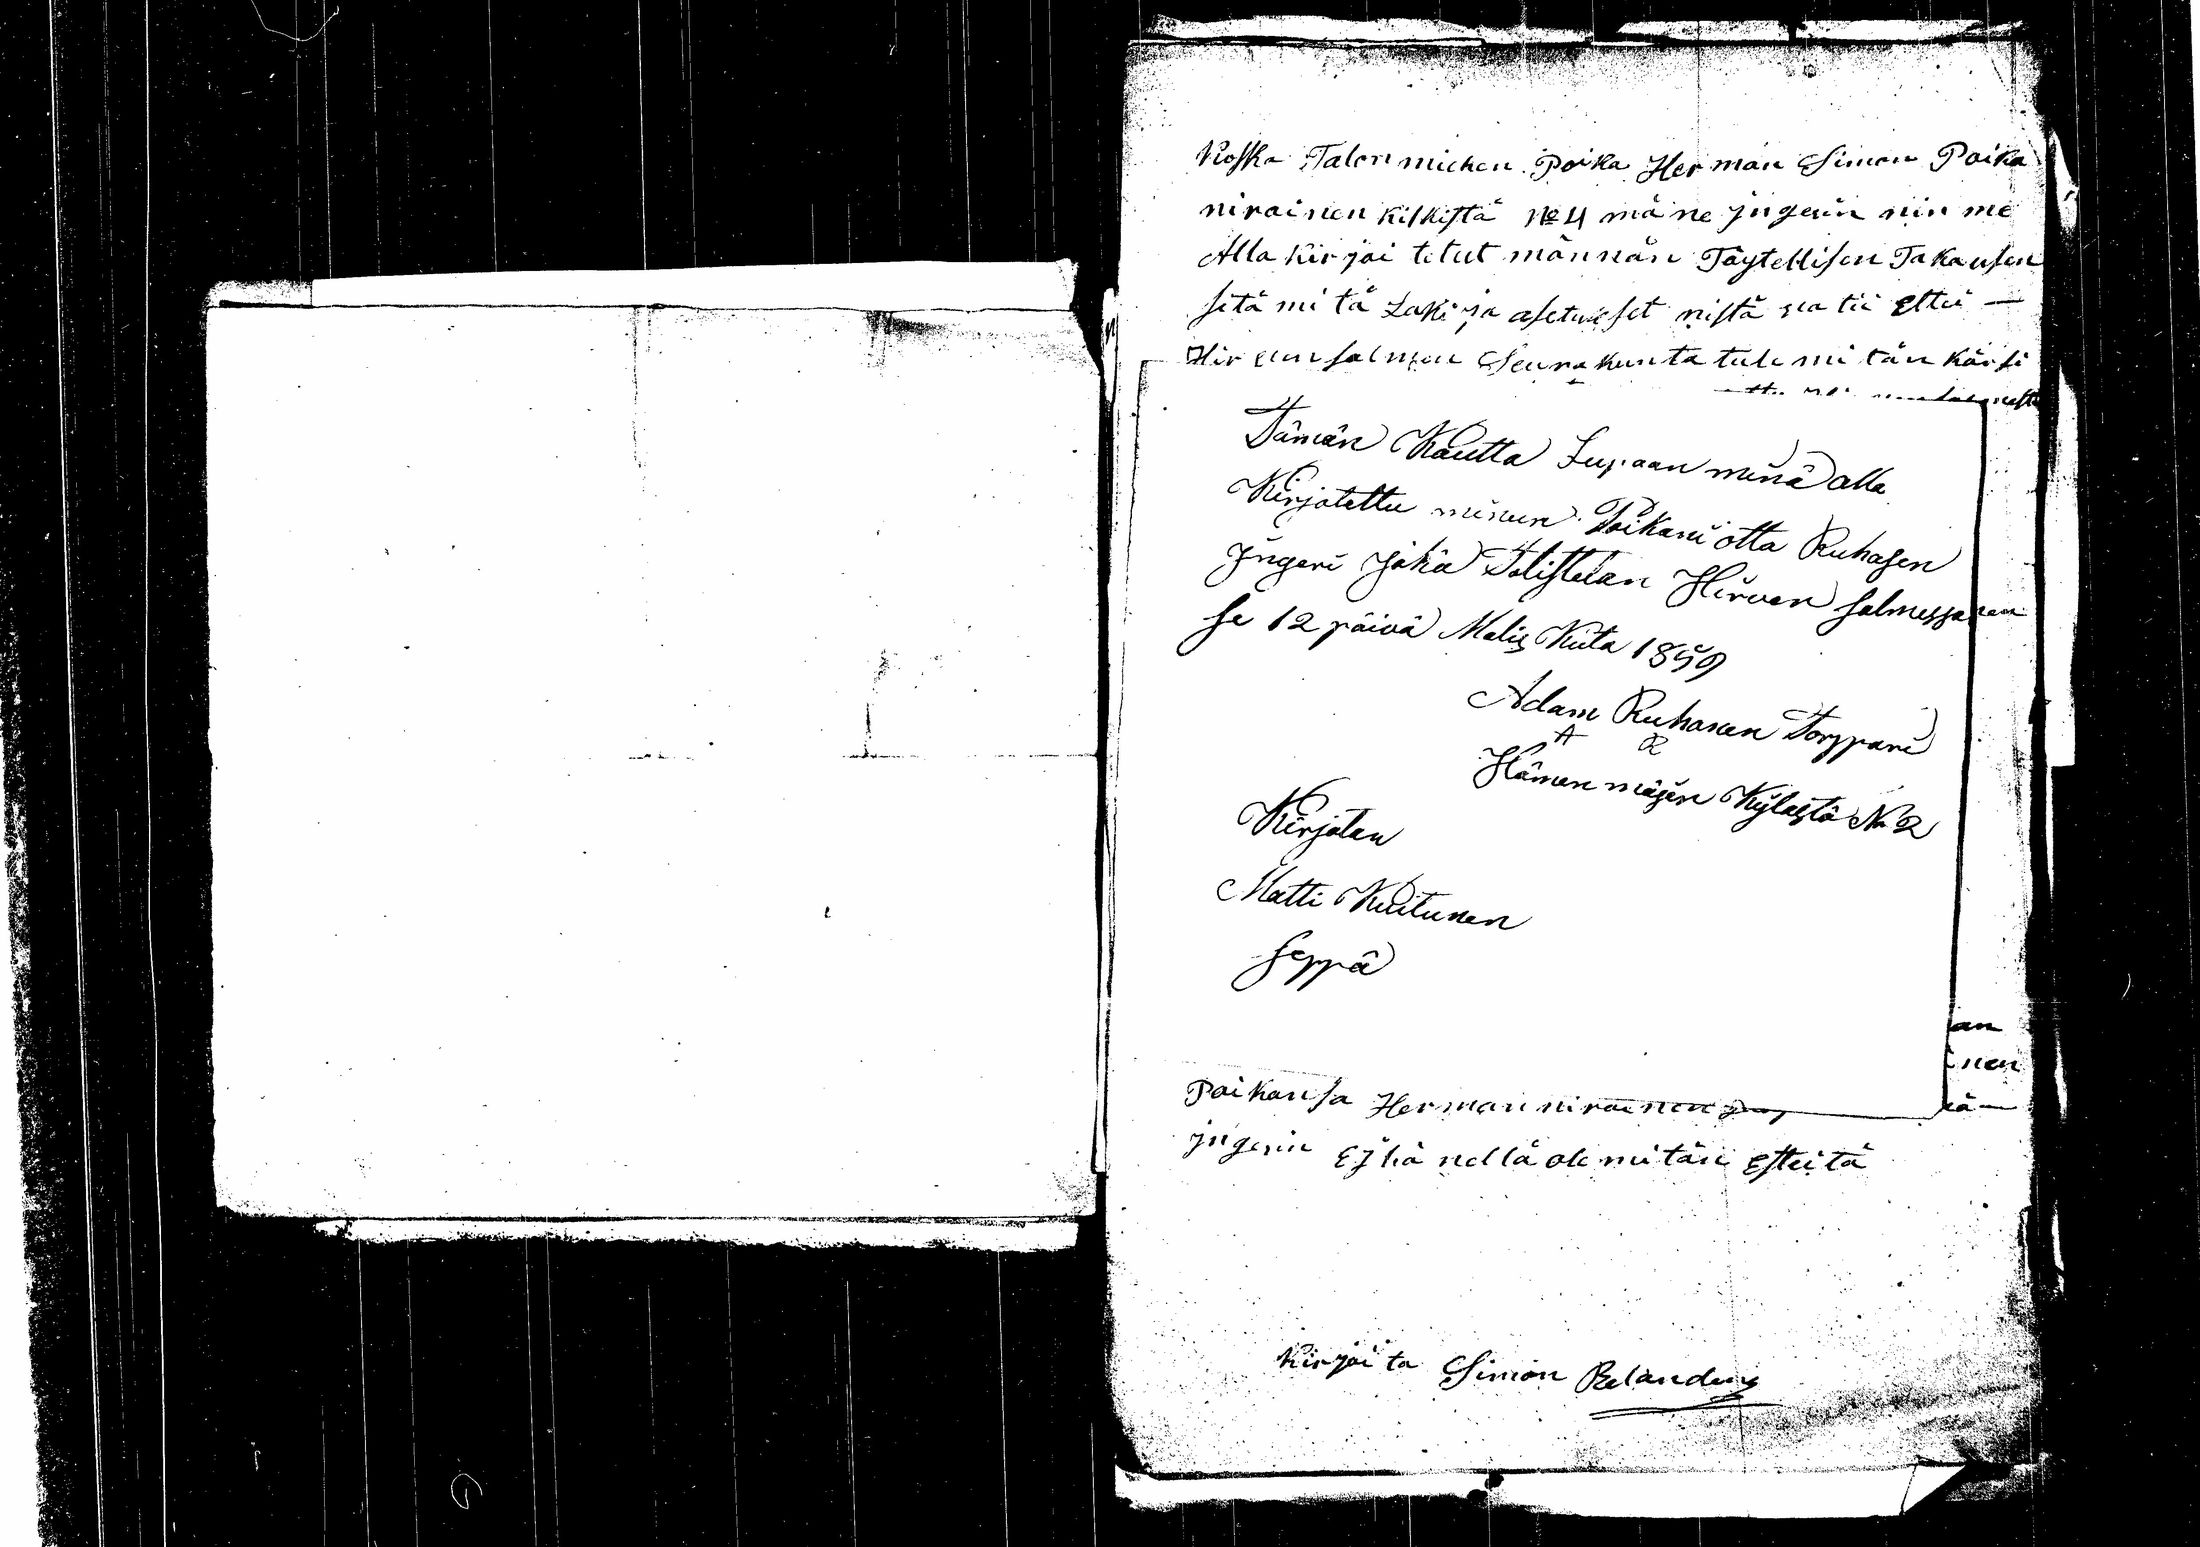 Koska Talon miehen Poika Herman Simon Poika
nirainen Kilkistä No 4 mä ne jngerin nin me
Alla Kirjoi tetut männän Täytellisen Takausen
sitä mi tä Laki ja asetuxset nistä sia tii ettei —
Hir ven salmen Seurakunta tule mi tän kärsi
Tämän Kautta Lupaan minä alla
Kirjotettu minun Poikani otta Ruhasen
Jngeri jokä Tolistetan Hirven salmessa
se 12 päivä Malis Kuta 1859
Adam Ruhanen Torppari
A R
Hämen mäjen Kylästä No 2
Kirjotan
Matti Kuitunen
seppä
an
nen
tä —
Poikansa Herman nirainen
jngerin Ej hä nellä ole mitän Esteitä
Kirjoi ta Simon Relander